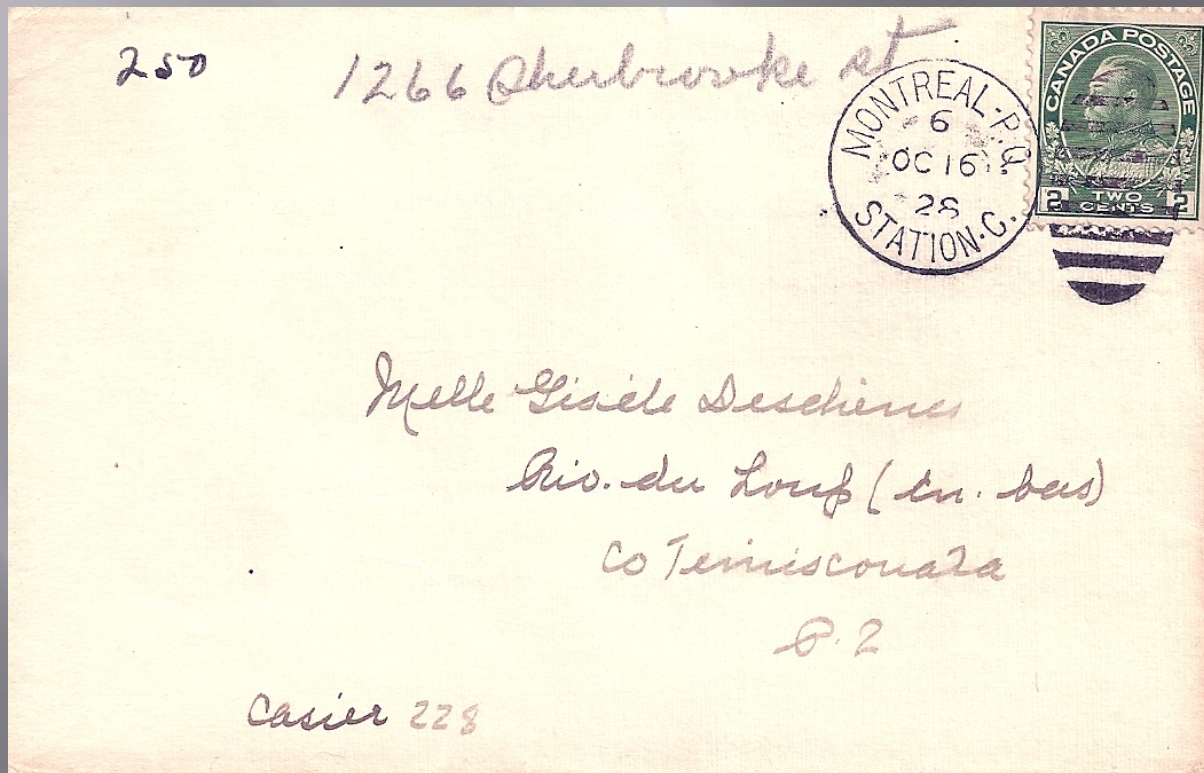 250
1266 Sherbrooke st.
MONTREAL-P.Q.
6
OC 16
28
STATION-C.
CANADA POSTAGE
2 TWO CENTS 2
Melle Gisèle Deschènes
Riv. du Loup (en. bas)
Co Temiscouata
P. Q
Casier 228